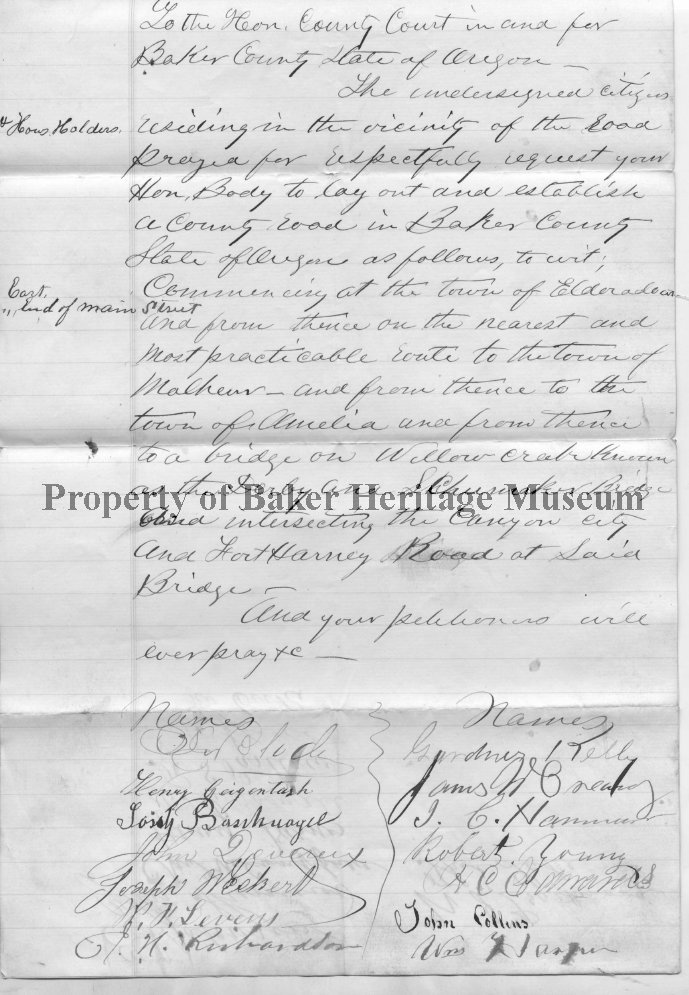 To the Hon. County Court in and for
Baker County State of Oregon —
The undersigned citizens
& Hous Holders.
residing in the vicinity of the road
prayed for respectfully request your
Hon. Body to lay out and establish
a County road in Baker County
State of Oregon as follows, to wit;
East
end of main Street
Commencing at the town of Eldorado
and from thence on the nearest and
most practicable route to the town of
Malheur — and from thence to the
town of Amelia and from thence
to a bridge on Willow creek known
as the Derby and Bridge
Property of Baker Heritage Museum
and intersecting the Canyon city
and Fort Harney Road at Said
Bridge —
And your petitioners will
ever pray &c —
Names
Names
Gardner Kelly
Henry
James
J. C.
John Devereux
Robert Young
Joseph Weskert
H. C.
Levens
John Collins
Richardson
Wm